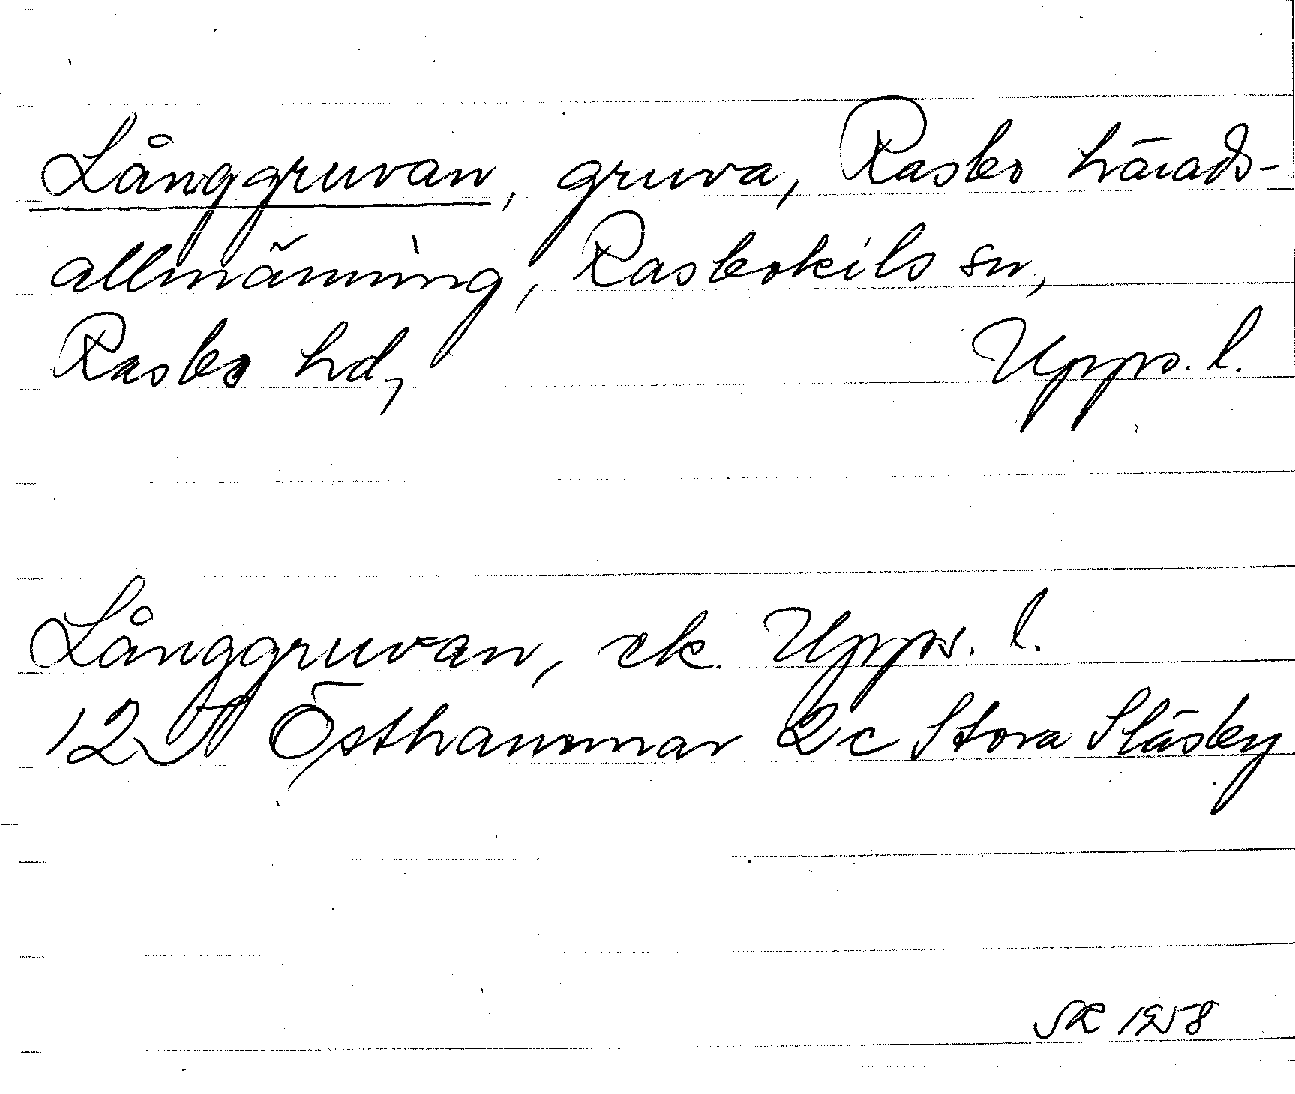 Långgruvan, gruva, Rasbo härads-
allmänning, Rasbokils sn,
Rasbo hd, Upps. l.
Långgruvan, ek. Upps. l.
12 I Östhammar 2c Stora Släsby
SR 1958